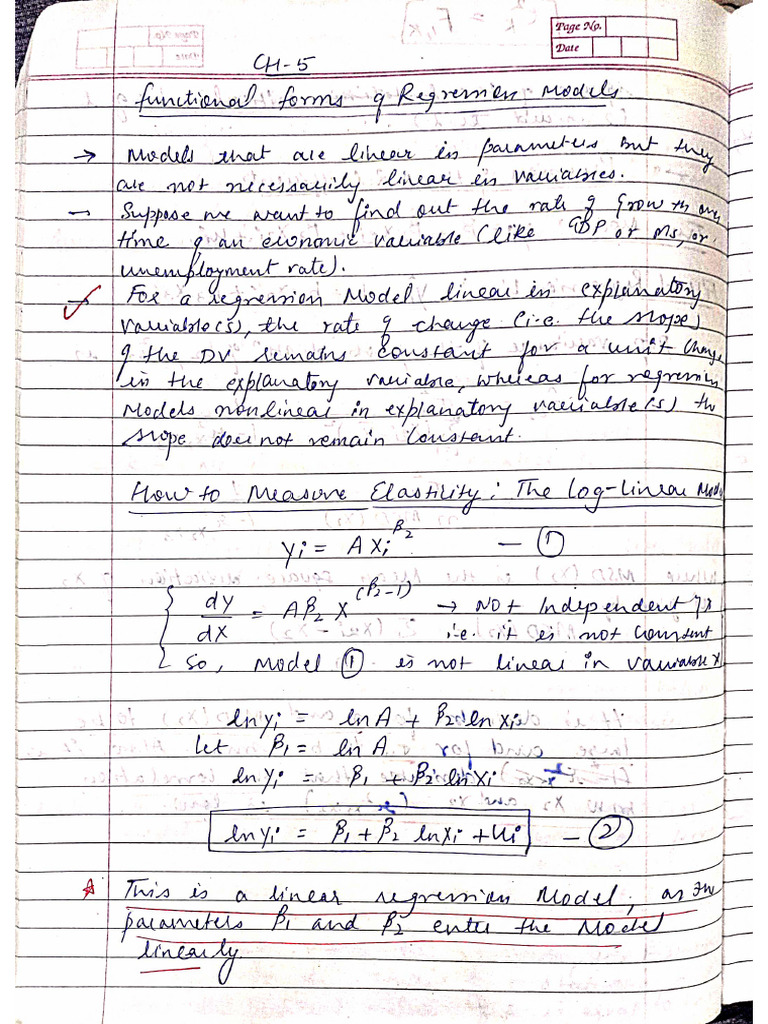 Page No.
Date
CH-5
Functional forms of Regression Models
→ Models that are linear in parameters but they
are not necessarily linear in variables.
→ Suppose we want to find out the rate of growth over
time of an economic variable (like GDP or Ms, or
unemployment rate).
→ For a regression Model linear in explanatory
variable(s), the rate of change (i.e. the slope)
of the DV remains constant for a unit change
in the explanatory variable, whereas for regression
Models nonlinear in explanatory variable(s) the
slope does not remain constant.
How to Measure Elasticity: The log-linear Model
Yi = A Xi^β2 — ①
dY/dX = Aβ2 X^(β2-1) → Not Independent of X
i.e. it is not constant
So, Model ① is not linear in variable X
lnYi = lnA + β2 lnXi
let β1 = lnA
lnYi = β1 + β2 lnXi
lnYi = β1 + β2 lnXi + ui — ②
This is a linear regression Model, as the
parameters β1 and β2 enter the Model
linearly